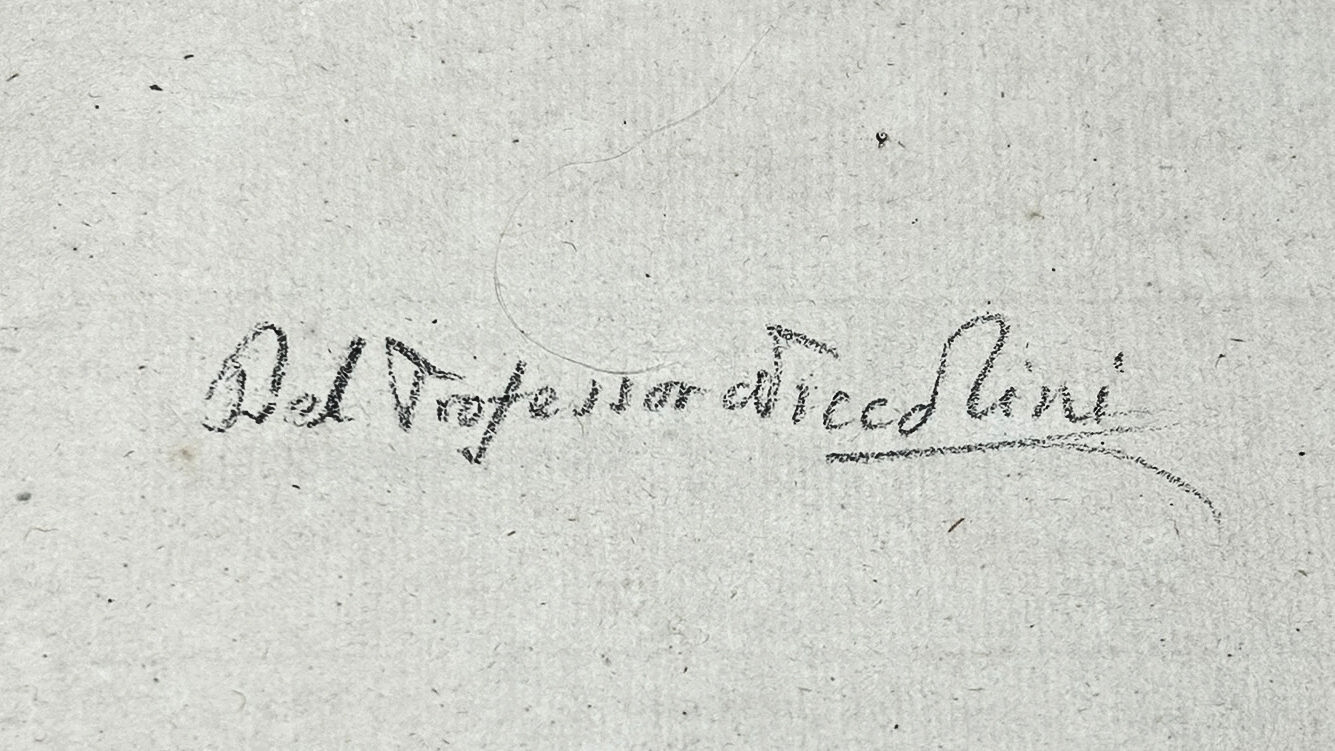 Del Professor Niccolini